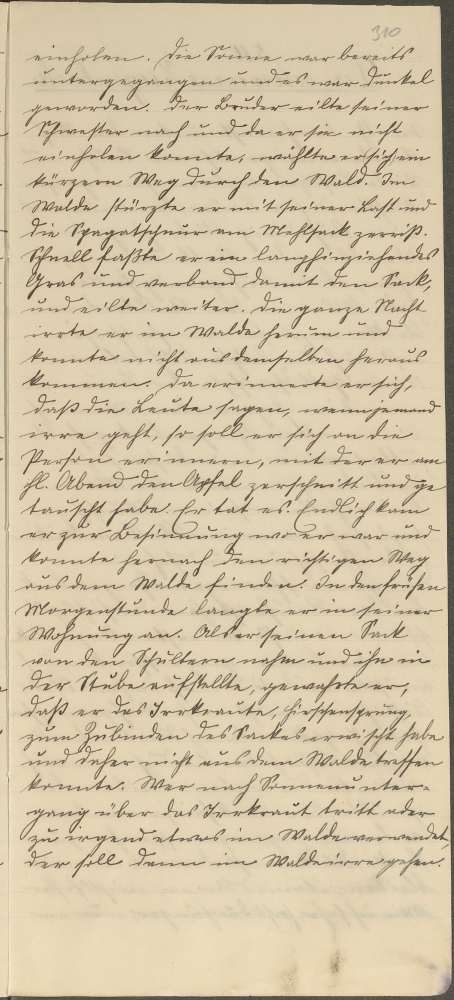 310
einholen. Die Sonne war bereits
untergegangen und es war dunkel
geworden. Der Bruder eilte seiner
Schwester nach und da er sie nicht
einholen konnte, wählte er sich ein
kürzern Weg durch den Wald. Im
Walde stürzte er mit seiner Last und
die Spagatschnur am Mehlsack zerriß.
Schnell faßte er ein langhinziehendes
Gras und verband damit den Sack,
und eilte weiter. Die ganze Nacht
irrte er im Walde herum und
konnte nicht aus demselben heraus
kommen. Da erinnerte er sich,
daß die Leute sagen, wenn jemand
irre geht, so soll er sich an die
Person erinnern, mit der er am
hl. Abend den Apfel zerschnitt und ge
tauscht habe. Er tat es. Endlich kam
er zur Besinnung wo er war und
konnte hernach den richtigen Weg
aus dem Walde finden. In den frühen
Morgenstunde langte er in seiner
Wohnung an. Als er seinen Sack
von den Schultern nahm und ihn in
der Stube aufstellte, gewahrte er,
daß er das Irrkraute, Hirschensprung,
zum Zubinden des Sackes erwischt habe
und daher nicht aus dem Walde treffen
konnte. Wer nach Sonnenunter-
gang über das Irrkraut tritt oder
zu irgend etwas im Walde verwendet,
der soll dann im Walde irre gehen.